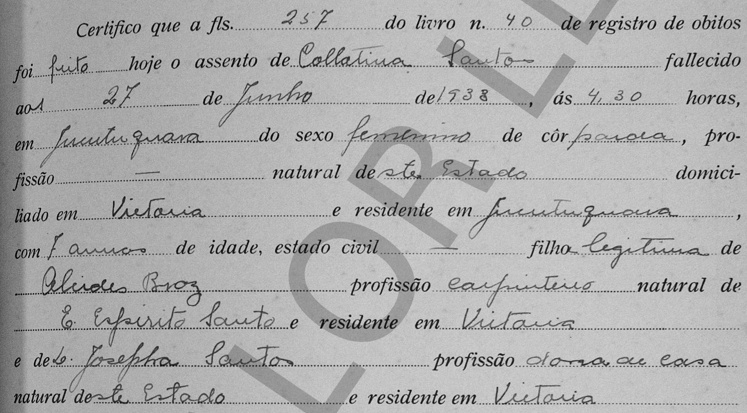 Certifico que a fls. 257 do livro n. 40 de registro de obitos
foi feito hoje o assento de Collatina Santos fallecido
aos 27 de Junho de 1938, ás 4,30 horas,
em Jucutuquara do sexo femenino de côr parda, pro-
fissão — natural deste Estado domici-
liado em Victoria e residente em Jucutuquara,
com 7 annos de idade, estado civil — filho legitima de
Alcides Broz profissão carpinteiro natural de
E. Espirito Santo e residente em Victoria
e de D. Josepha Santos profissão dona de casa
natural deste Estado e residente em Victoria